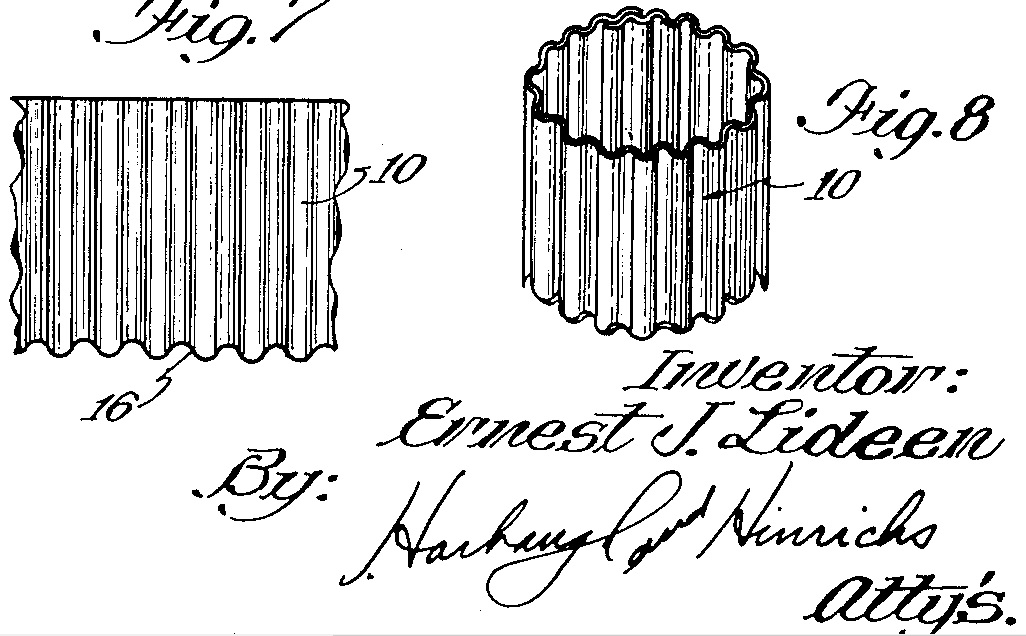 Fig. 7
Fig. 8
10
10
16
Inventor:
Ernest J. Lideen
By:
Harbaugh and Hinrichs
Atty's.